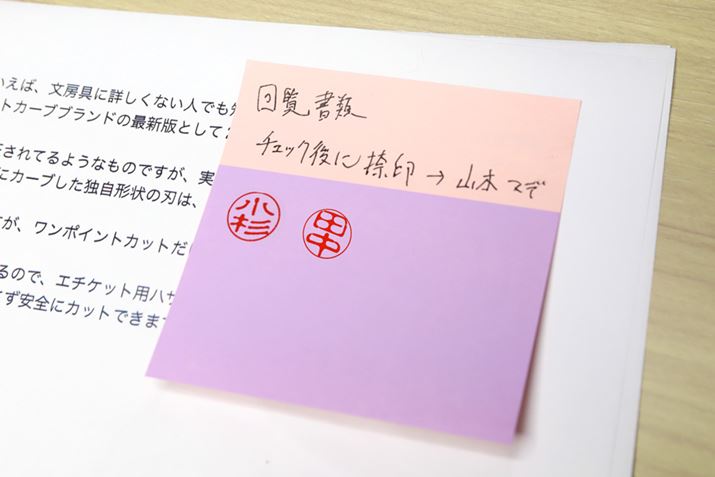 いえば、文房具に詳しくない人でも
トカーブブランドの最新版として
されてるようなものですが、実
にカーブした独自形状の刃は、
すが、ワンポイントカットだ
るので、エチケット用ハサ
ず安全にカットできま
回覧書類
チェック後に捺印 → 山本マデ
小杉 田中